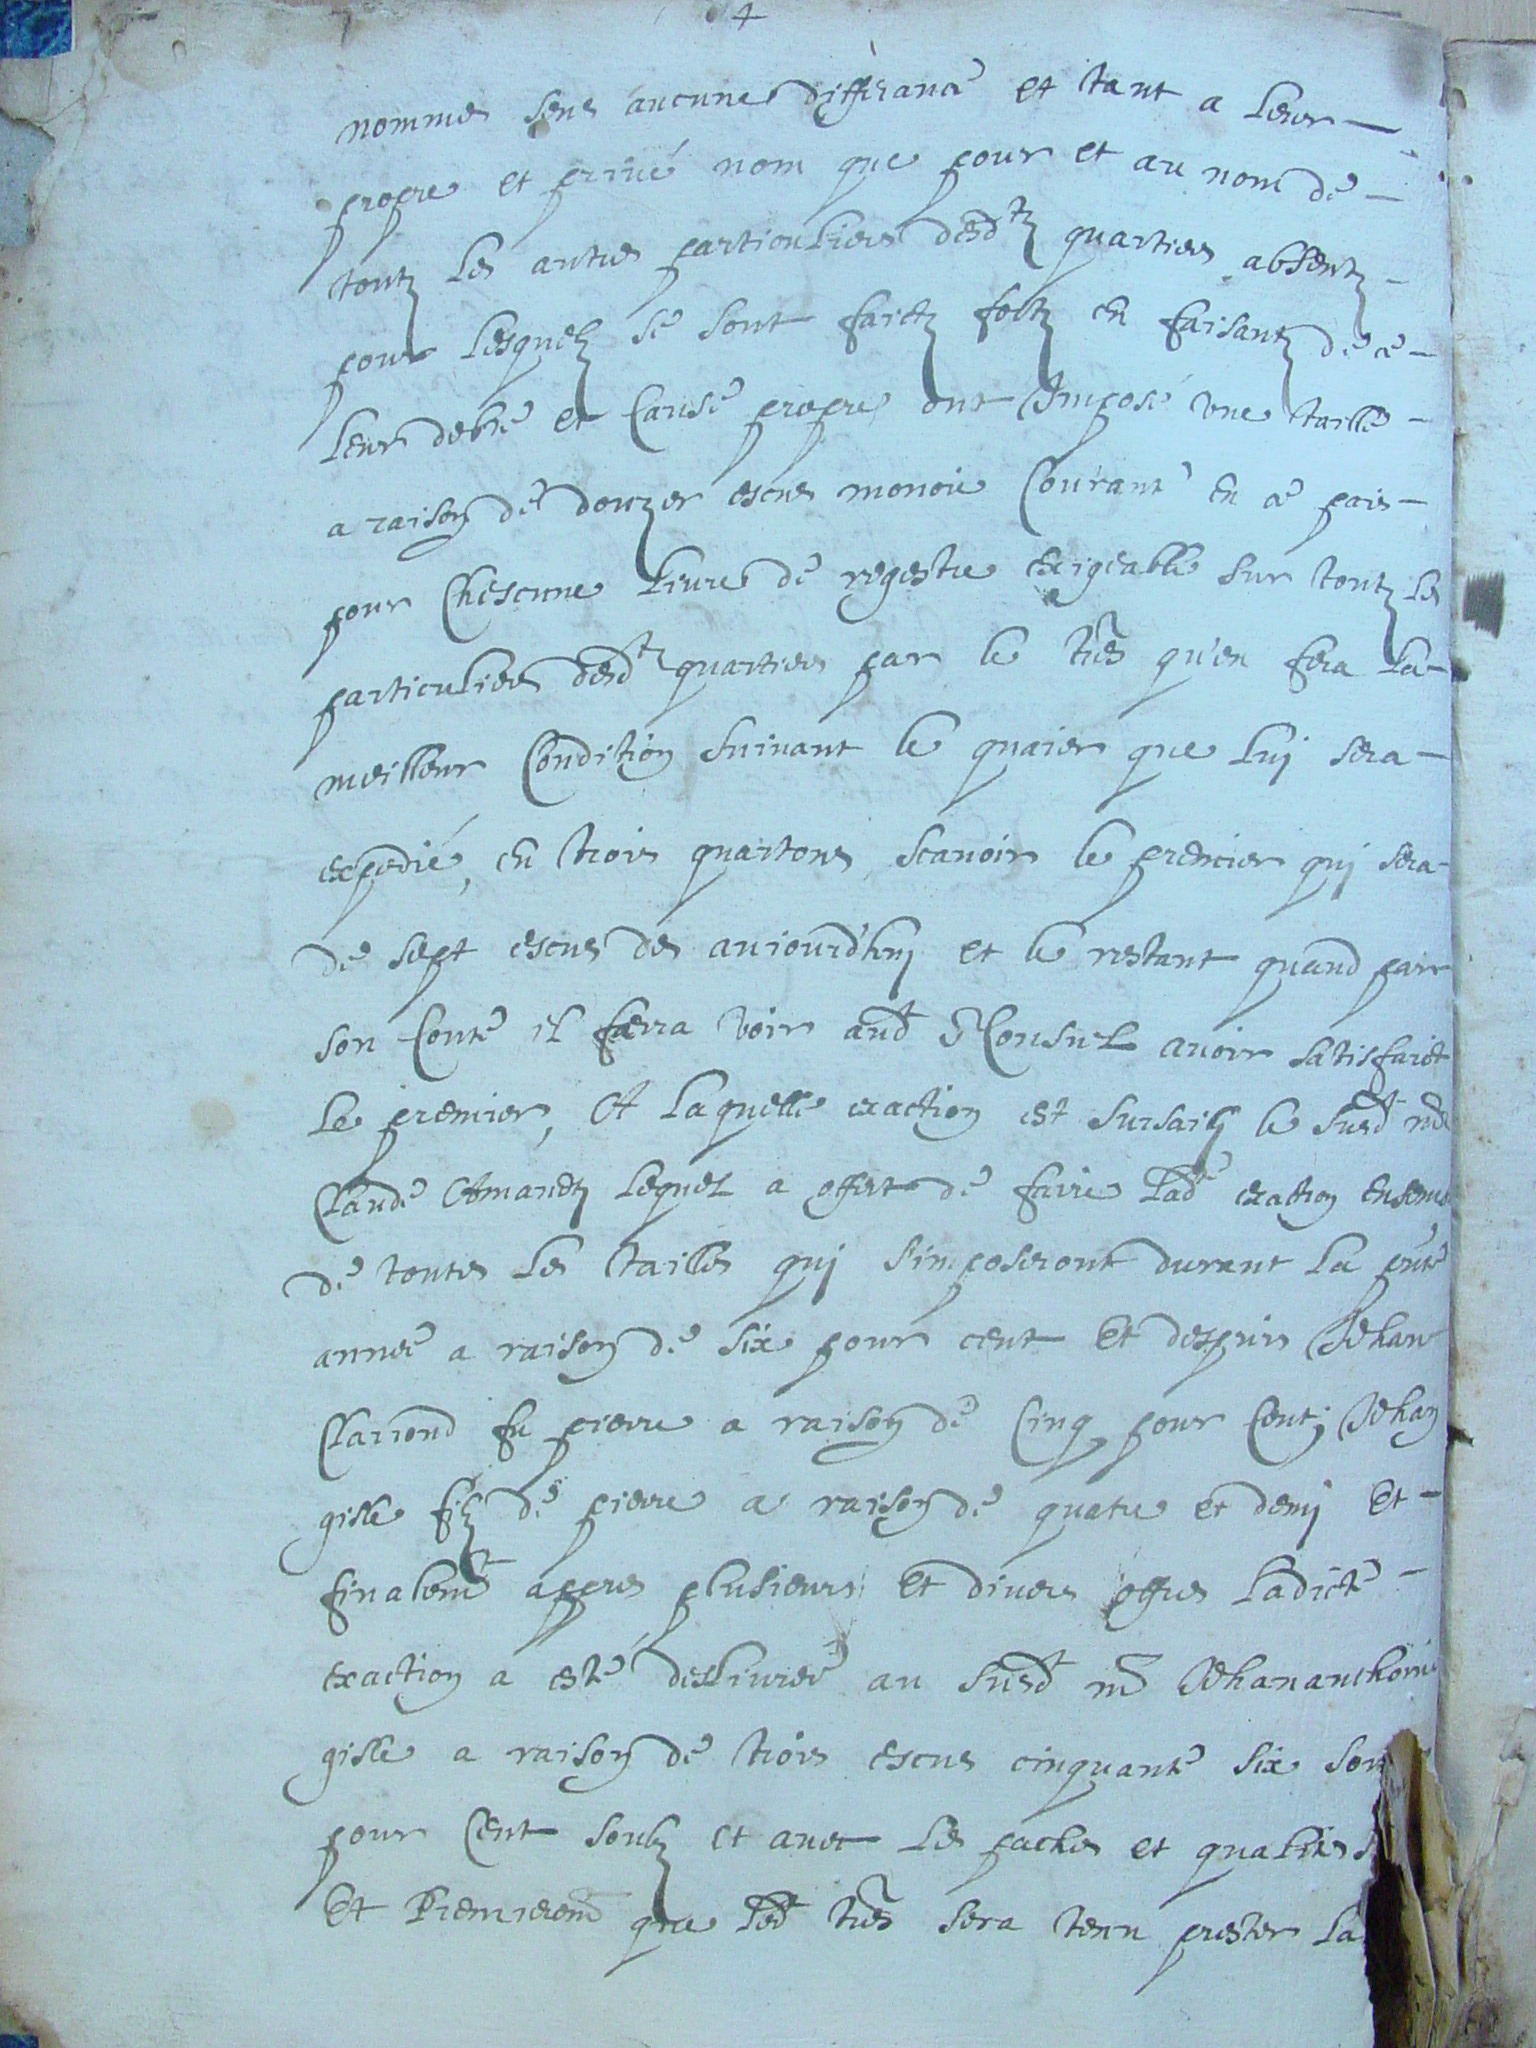 nommes sens aucune differance et tant a leur
propre et privé nom que pour et au nom de
toutz les autres particuliers desd.tz quartiers absentz
pour lesquelz se sont faictz fortz en faisantz de ce
leur debte et cause propre ont imposé une taille
a raison de douzer escus monoie courant en ce pais
pour chescune livre de regestre exigeable sur toutz les
particuliers desd.tz quartiers par le tres.r qu'en fera la
meilleur condition suivant le quaier que luj sera
expedié, en trois quartons scavoir le premier quj sera
de sept escus des aujourd'huj et le restant quand par
son conte il faerra voir aud.t S.r Consul avoir satisfaict
le premier, A laquelle exaction est sursailj le susd.t m.e
Claude Amandtz lequel a offert de faire lad.e exaction ensemb
de toutes les tailles quj s'imposeront durant la p.nte
annee a raison de six pour cent Et despuis Jehan
Clariond fu pierre a raison de cinq pour cent; Jehan
gisle filz de pierre a raison de quatre et demj Et
finalem.t appres plusieurs et divers offres ladicte
exaction a esté deslivree au susd.t m.e Jehananthoine
gisle a raison de trois escus cinquante six
pour cent soubz et avec les paches et qualites
Et Premierem.t que led.t tres.r sera tenu prester la